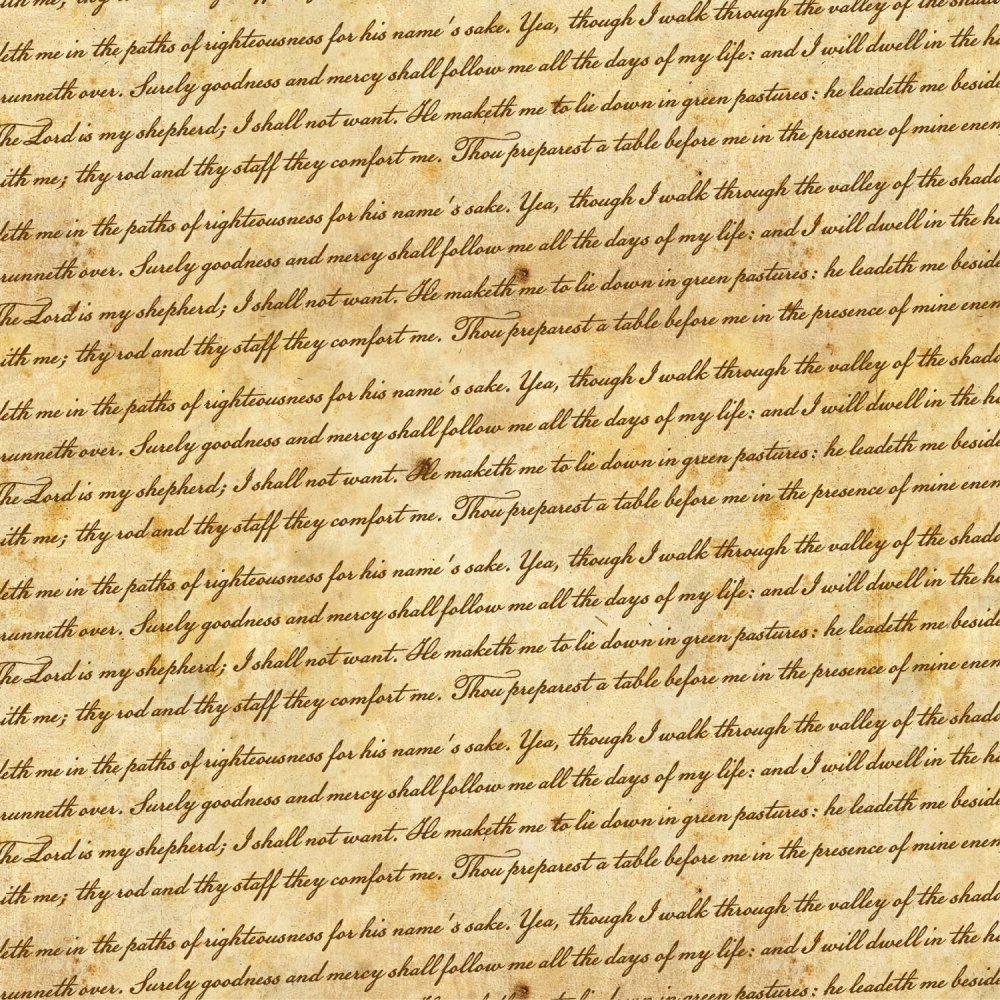 leth me in the paths of righteousness for his name's sake. Yea, though I walk through the valley of the shado
runneth over. Surely goodness and mercy shall follow me all the days of my life: and I will dwell in the ho
The Lord is my shepherd; I shall not want. He maketh me to lie down in green pastures: he leadeth me beside
ith me; thy rod and thy staff they comfort me. Thou preparest a table before me in the presence of mine enem
leth me in the paths of righteousness for his name's sake. Yea, though I walk through the valley of the shado
runneth over. Surely goodness and mercy shall follow me all the days of my life: and I will dwell in the ho
The Lord is my shepherd; I shall not want. He maketh me to lie down in green pastures: he leadeth me beside
ith me; thy rod and thy staff they comfort me. Thou preparest a table before me in the presence of mine enem
leth me in the paths of righteousness for his name's sake. Yea, though I walk through the valley of the shado
runneth over. Surely goodness and mercy shall follow me all the days of my life: and I will dwell in the ho
The Lord is my shepherd; I shall not want. He maketh me to lie down in green pastures: he leadeth me beside
ith me; thy rod and thy staff they comfort me. Thou preparest a table before me in the presence of mine enem
leth me in the paths of righteousness for his name's sake. Yea, though I walk through the valley of the shado
runneth over. Surely goodness and mercy shall follow me all the days of my life: and I will dwell in the ho
The Lord is my shepherd; I shall not want. He maketh me to lie down in green pastures: he leadeth me beside
ith me; thy rod and thy staff they comfort me. Thou preparest a table before me in the presence of mine enem
leth me in the paths of righteousness for his name's sake. Yea, though I walk through the valley of the shado
runneth over. Surely goodness and mercy shall follow me all the days of my life: and I will dwell in the ho
The Lord is my shepherd; I shall not want. He maketh me to lie down in green pastures: he leadeth me beside
ith me; thy rod and thy staff they comfort me. Thou preparest a table before me in the presence of mine enem
leth me in the paths of righteousness for his name's sake. Yea, though I walk through the valley of the shado
runneth over. Surely goodness and mercy shall follow me all the days of my life: and I will dwell in the ho
in green pastures: he leadeth me beside